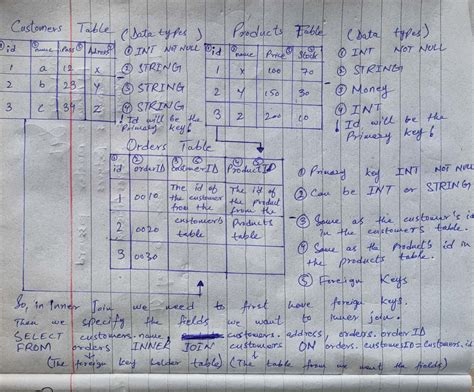 Customers Table (Data types)
① id ② name ③ Pass ④ Address
1 a 12 x
2 b 23 y
3 c 34 z
① INT NOT NULL
② STRING
③ STRING
④ STRING
! Id will be the Primary key!
Products Table (Data types)
① id ② name ③ Price ④ Stock
1 x 100 70
2 y 150 30
3 z 200
① INT NOT NULL
② STRING
③ Money
④ INT
! Id will be the Primary key!
Orders Table
① id ② orderID ③ customerID ④ ProductID
1 0010 The id of the customer from the customers table The id of the product from the Products table
2 0020
3 0030
① Primary key INT NOT NULL
② Can be INT or STRING
③ Same as the customer's id in the customers table.
④ Same as the product's id in the products table.
⑤ Foreign Keys
So, in Inner Join we need to first have foreign keys.
Then we specify the fields we want to inner join.
SELECT customers.name, customers.address, orders.orderID
FROM orders INNER JOIN customers ON orders.customerID=Customers.id
(The foreign key holder table) (The table from we want the fields)